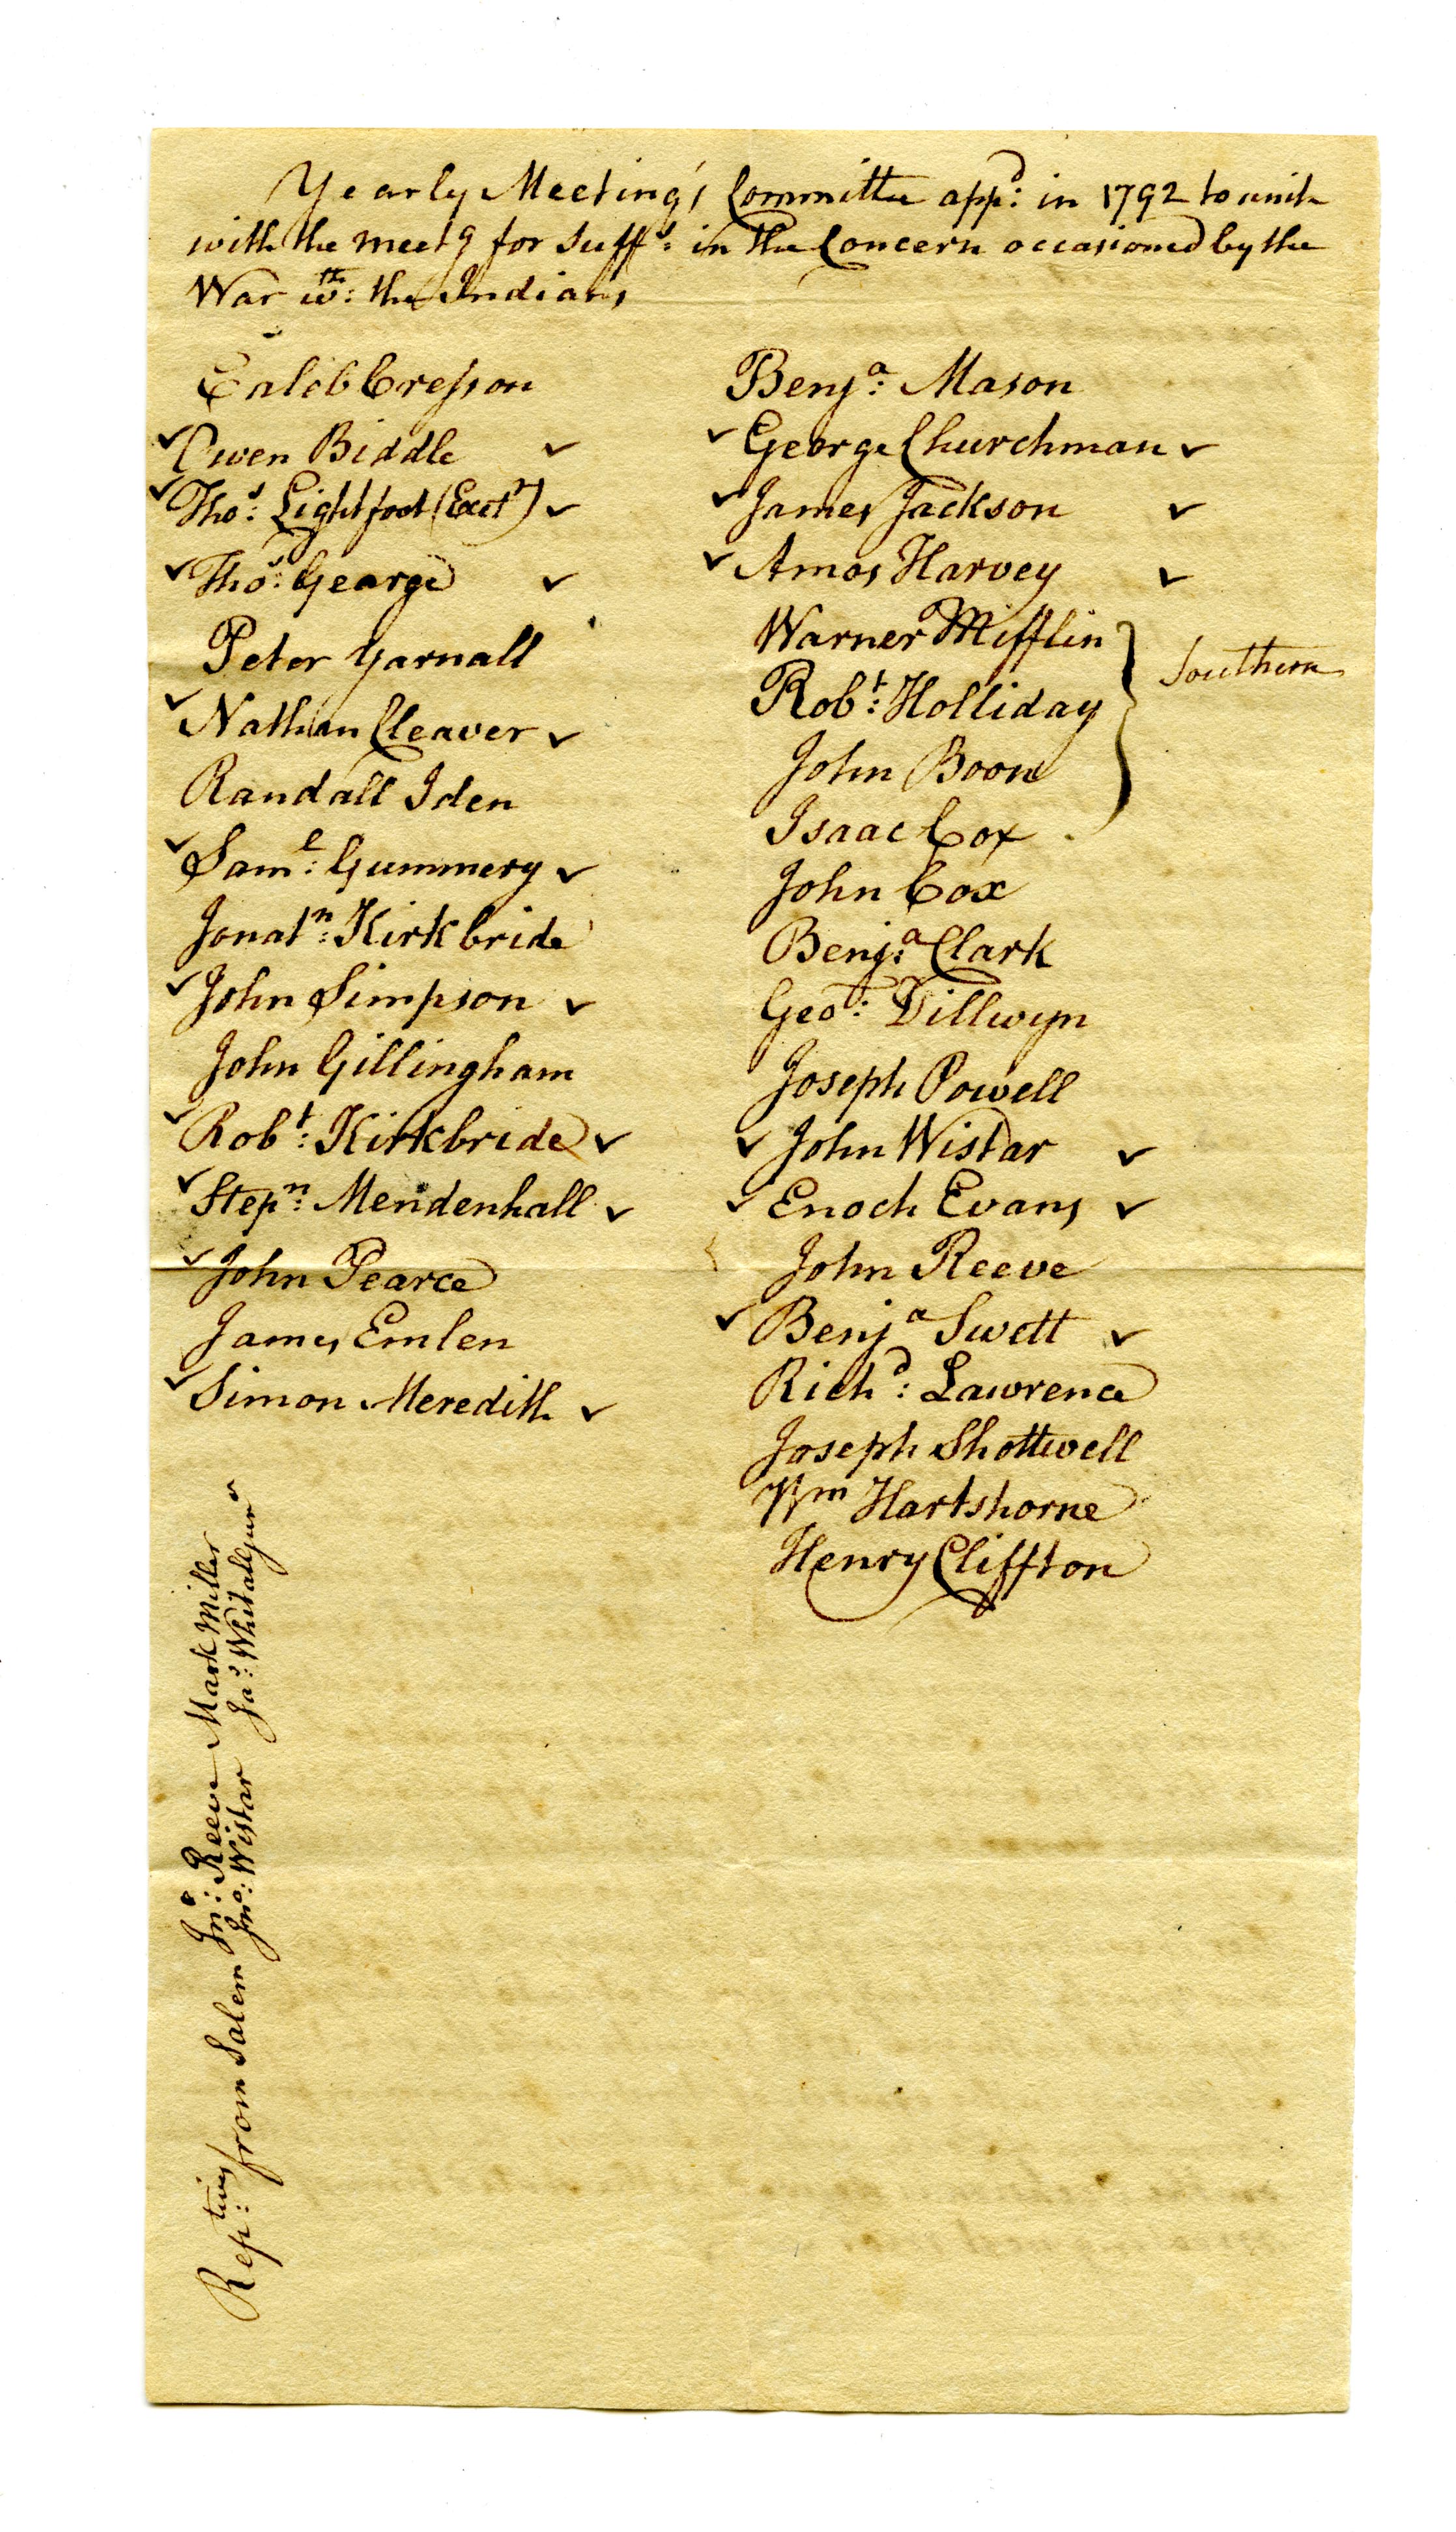 Yearly Meeting's Committee appd: in 1792 to unite
with the meetg for Suffs: in the Concern occasioned by the
War wth: the Indians
Caleb Cresson
✓ Owen Biddle ✓
✓ Thos: Lightfoot (Exetr) ✓
✓ Thos: George ✓
Peter Yarnall
✓ Nathan Cleaver ✓
Randall Iden
✓ Saml: Gummery ✓
Jonatn: Kirkbride
✓ John Simpson ✓
John Gillingham
✓ Robt: Kirkbride ✓
✓ Stepn: Mendenhall ✓
✓ John Pearce
James Emlen
✓ Simon Meredith ✓
Benja: Mason
✓ George Churchman ✓
✓ James Jackson ✓
✓ Amos Harvey ✓
Warner Mifflin
Robt: Holliday
Southern
John Boon
Isaac Cox
John Cox
Benja: Clark
Geo: Dillwyn
Joseph Powell
✓ John Wistar ✓
✓ Enoch Evans ✓
John Reeve
✓ Benja Swett ✓
Richd: Lawrence
Joseph Shottwell
Wm Hartshorne
Henry Cliffton
Reptives: from Salem
Jno: Reeve Mark Miller
Jno: Wistar Jas: Whitall Junr